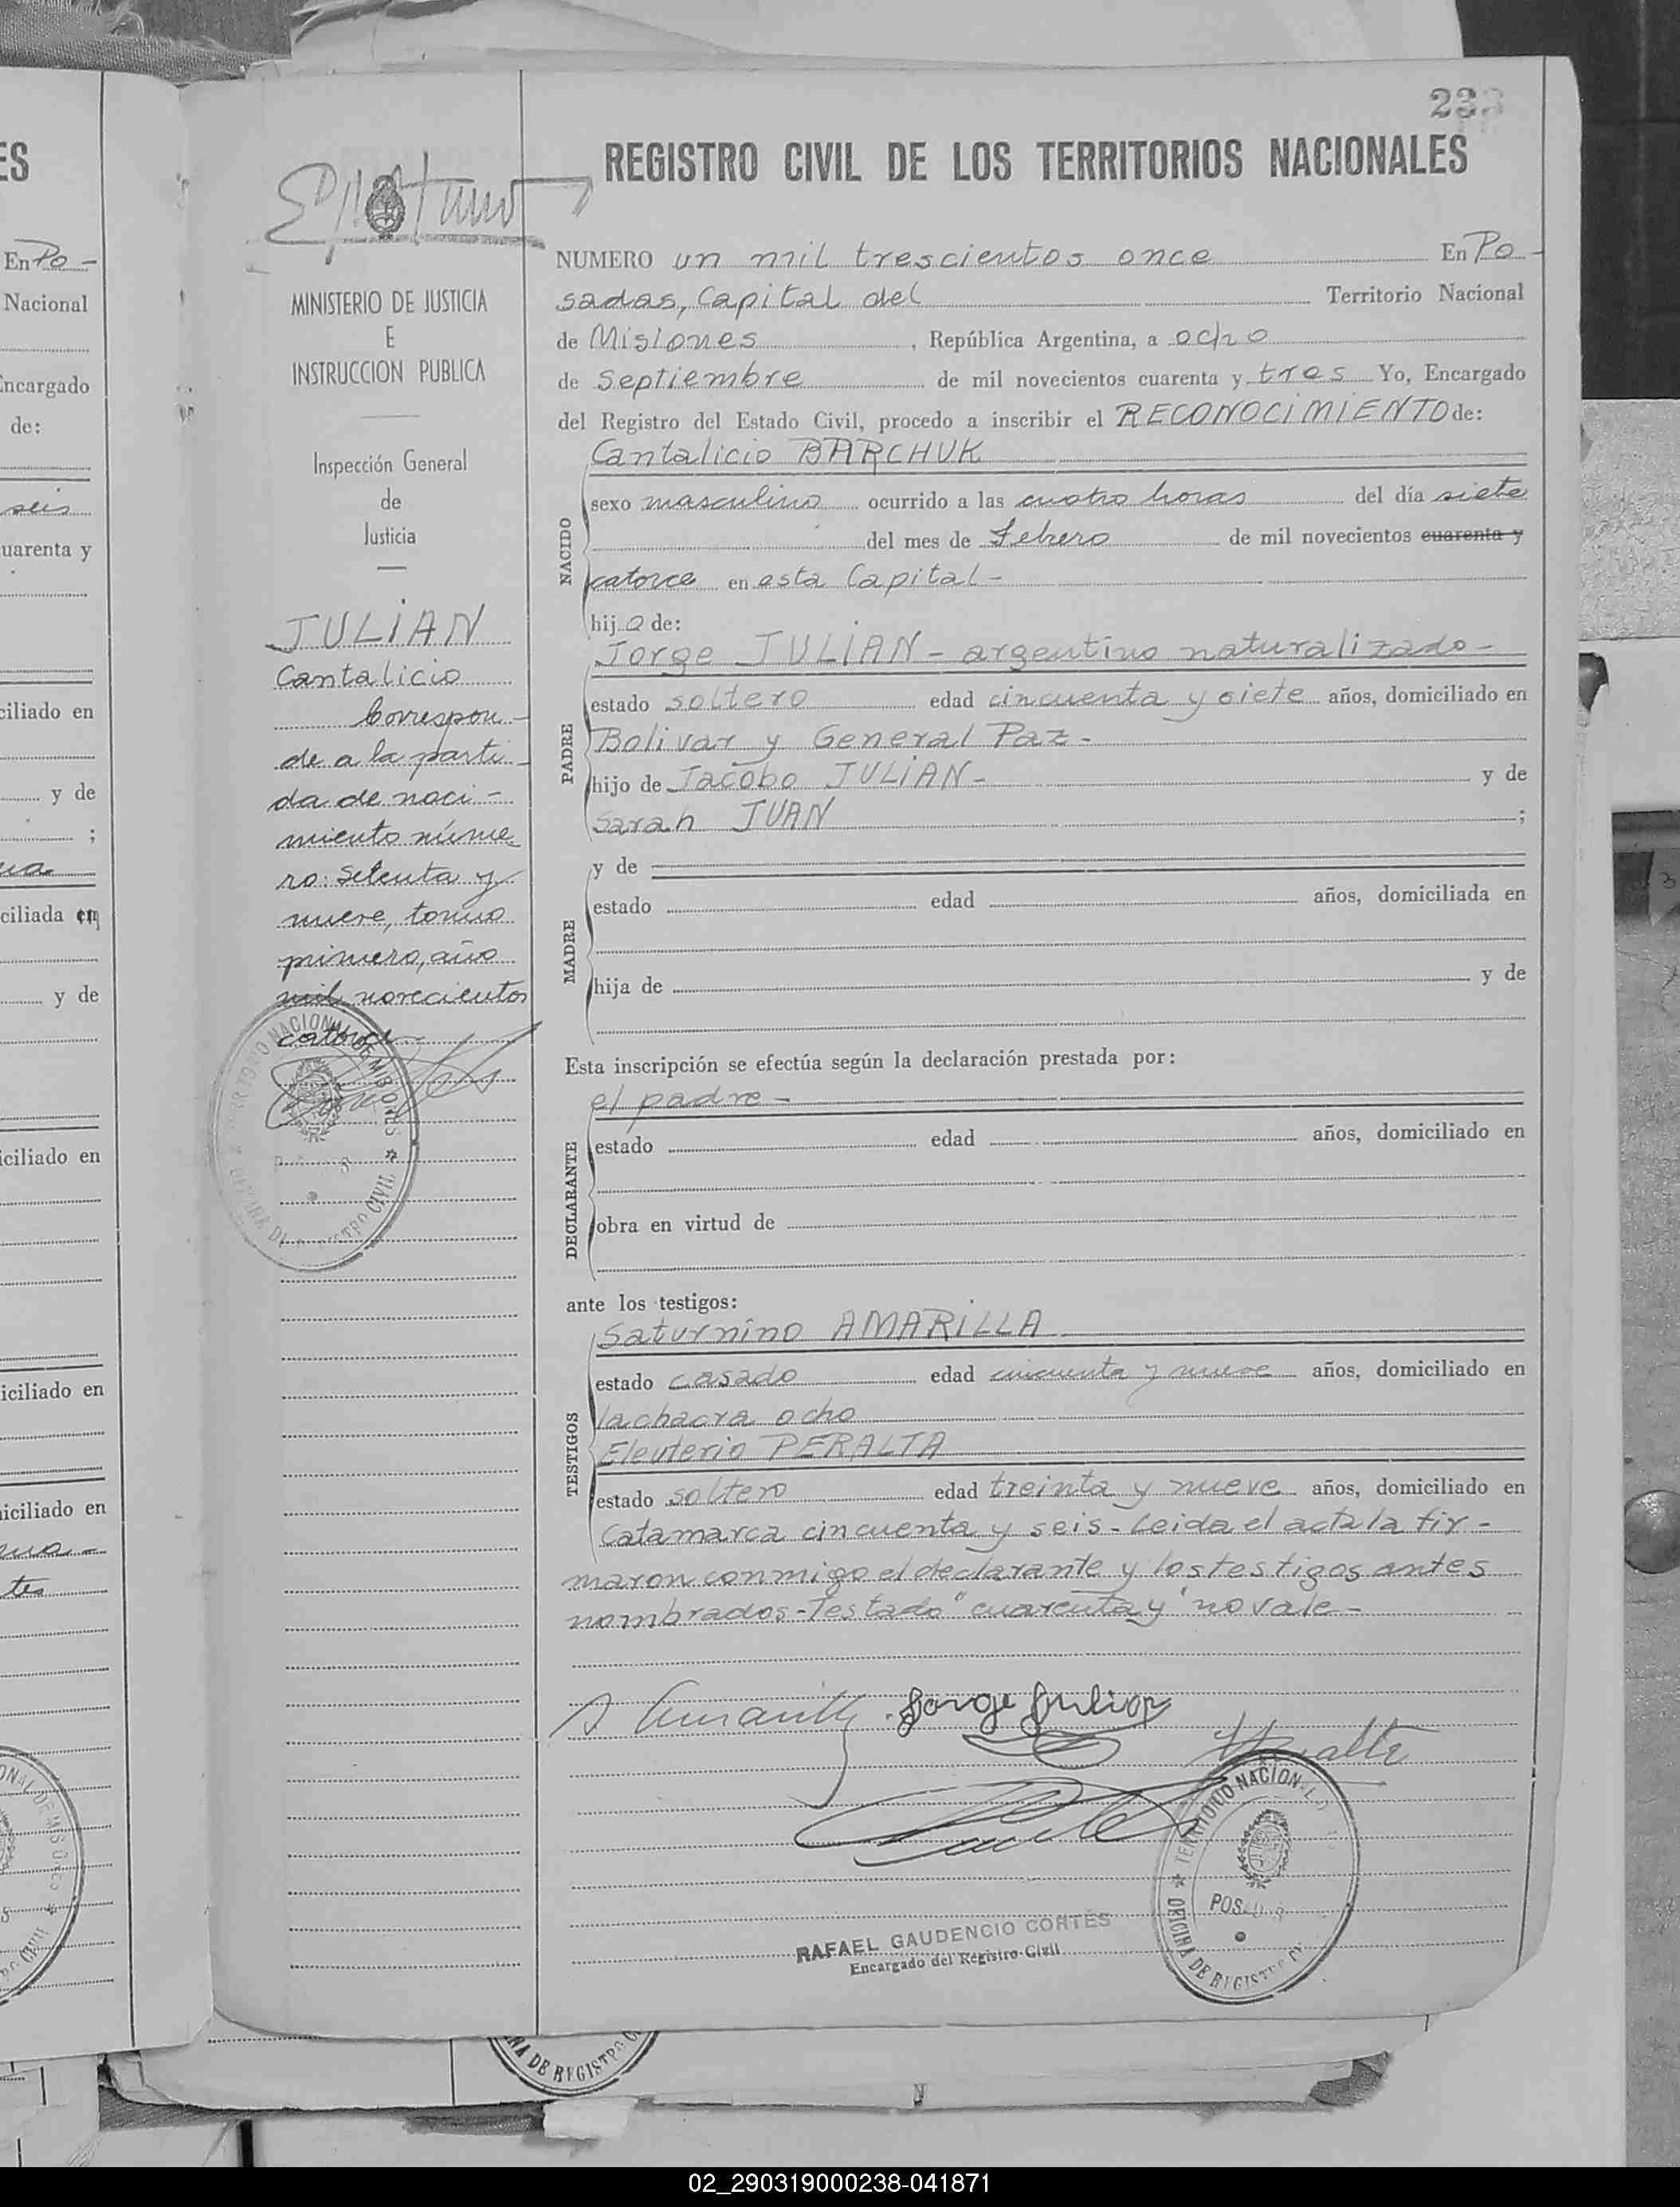 233
REGISTRO CIVIL DE LOS TERRITORIOS NACIONALES
NUMERO un mil trescientos once En Po-
sadas, Capital del Territorio Nacional
de Misiones, República Argentina, a ocho
de Septiembre de mil novecientos cuarenta y tres Yo, Encargado
del Registro del Estado Civil, procedo a inscribir el RECONOCIMIENTO de:
NACIDO
Cantalicio BARCHUK
sexo masculino ocurrido a las cuatro horas del día siete
del mes de Febrero de mil novecientos cuarenta y
catorce en esta Capital-
hijo de:
PADRE
Jorge JULIAN - argentino naturalizado-
estado soltero edad cincuenta y siete años, domiciliado en
Bolivar y General Paz-
hijo de Jacobo JULIAN- y de
Sarah JUAN ;
MADRE
y de
estado edad años, domiciliada en
hija de y de
Esta inscripción se efectúa según la declaración prestada por:
DECLARANTE
el padre-
estado edad años, domiciliado en
obra en virtud de
ante los testigos:
TESTIGOS
Saturnino AMARILLA
estado casado edad cincuenta y nueve años, domiciliado en
la chacra ocho
Eleuterio PERALTA
estado soltero edad treinta y nueve años, domiciliado en
Catamarca cincuenta y seis- Leida el acta la fir-
maron conmigo el declarante y los testigos antes
nombrados-Testado "cuarenta y" no vale-
Jorge Julian
RAFAEL GAUDENCIO CORTES
Encargado del Registro Civil
TERRITORIO NACIONAL
POSADAS
OFICINA DE REGISTRO
MINISTERIO DE JUSTICIA
E
INSTRUCCION PUBLICA
Inspección General
de
Justicia
JULIAN
Cantalicio
Correspon-
de a la parti-
da de naci-
miento núme-
ro: Setenta y
nueve, tomo
primero, año
mil novecientos
catorce-
NACIONAL DE MISIONES
REGISTRO CIVIL
ES
En Po-
Nacional
Encargado
de:
seis
cuarenta y
ciliado en
y de
;
ciliada en
y de
iciliado en
iciliado en
iciliado en
tes
OFICINA DE REGISTRO
02_290319000238-041871